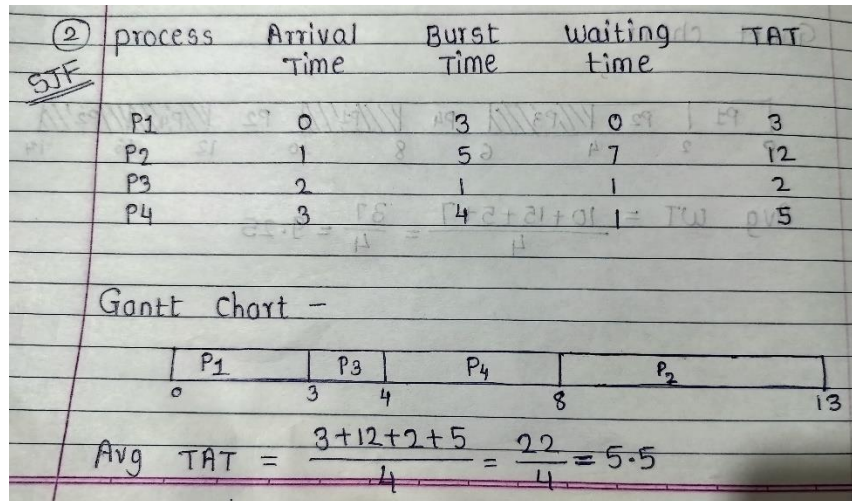 ② process Arrival Time Burst Time waiting time TAT
SJF
P1 0 3 0 3
P2 1 5 7 12
P3 2 1 1 2
P4 3 4 1 5
Gantt Chart –
P1 P3 P4 P2
0 3 4 8 13
Avg TAT = 3+12+2+5 / 4 = 22 / 4 = 5.5